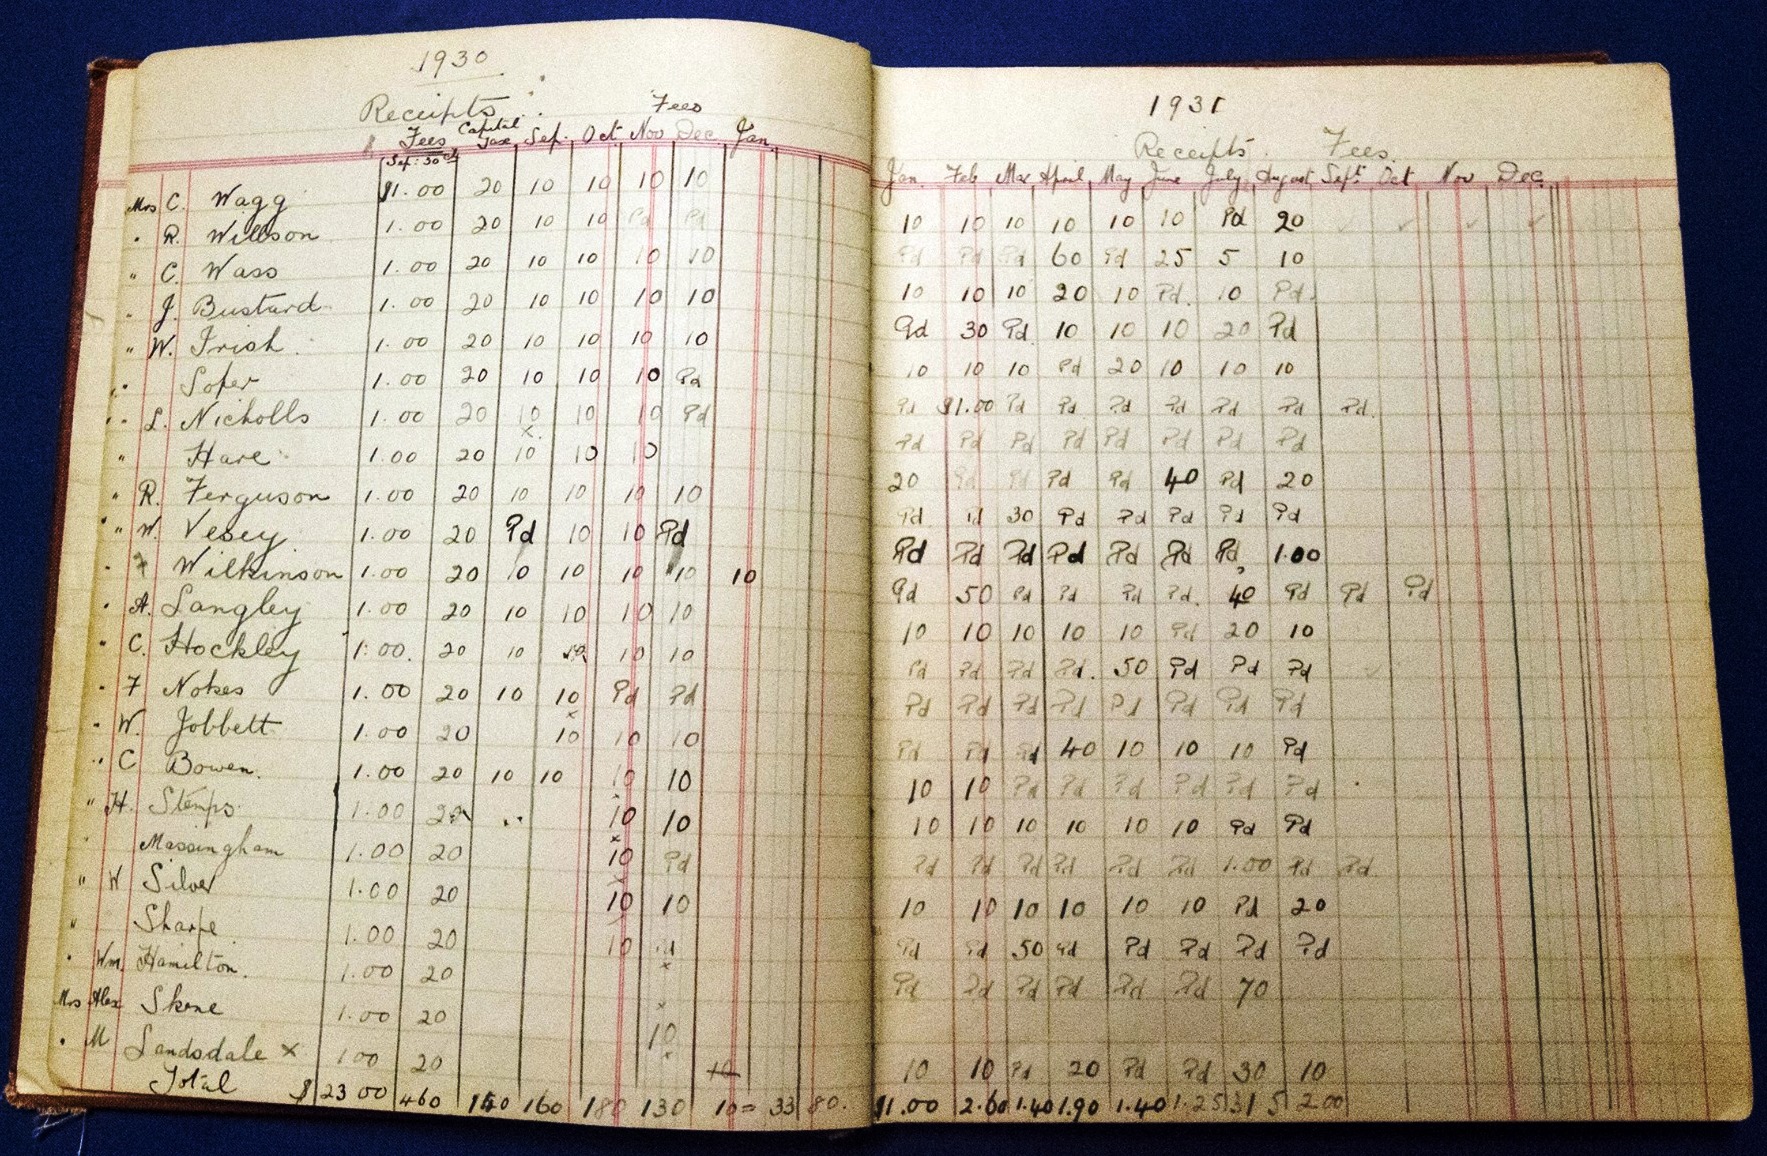 1930
Receipts Fees
Fees Capital Tax Sep. Oct Nov Dec Jan.
Sep: 30th
Mrs C. Wagg $1.00 20 10 10 10 10
" R. Willson 1.00 20 10 10 Pd Pd
" C. Wass 1.00 20 10 10 10 10
" J. Bustard 1.00 20 10 10 10 10
" W. Frish 1.00 20 10 10 10 10
" Soper 1.00 20 10 10 10 Pd
" L. Nicholls 1.00 20 10 10 10 Pd
" Hare 1.00 20 10 10 10
" R. Ferguson 1.00 20 10 10 10 10
" W. Vesey 1.00 20 Pd 10 10 Pd
" F Wilkinson 1.00 20 10 10 10 10 10
" A. Langley 1.00 20 10 10 10 10
" C. Hockley 1.00 20 10 10 10 10
" F Nokes 1.00 20 10 10 Pd Pd
" W. Jobbett 1.00 20 10 10 10
" C Bowen. 1.00 20 10 10 10 10
" H. Stemps 1.00 20 10 10
" Massingham 1.00 20 10 Pd
" W Silver 1.00 20 10 10
" Sharpe 1.00 20 10
" Wm. Hamilton. 1.00 20
Mrs Alex Skene 1.00 20 10
" M Landsdale x 1 00 20 10
Total $ 23 00 460 160 180 130 10 = 33 80.
1931
Receipts Fees
Jan. Feb Mar April May June July August Sept Oct Nov Dec.
10 10 10 10 10 10 Pd 20
Pd Pd Pd 60 Pd 25 5 10
10 10 10 20 10 Pd. 10 Pd.
Pd 30 Pd. 10 10 10 20 Pd
10 10 10 Pd 20 10 10 10
Pd $1.00 Pd Pd Pd Pd Pd Pd Pd.
Pd Pd Pd Pd Pd Pd Pd Pd
20 Pd Pd Pd Pd 40 Pd 20
Pd Pd 30 Pd Pd Pd Pd Pd
Pd Pd Pd Pd Pd Pd Pd, 1.00
Pd 50 Pd Pd Pd Pd. 40 Pd Pd Pd
10 10 10 10 10 Pd 20 10
Pd Pd Pd Pd. 50 Pd Pd Pd
Pd Pd Pd Pd Pd Pd Pd Pd
Pd Pd Pd 40 10 10 10 Pd
10 10 Pd Pd Pd Pd Pd Pd
10 10 10 10 10 10 Pd Pd
Pd Pd Pd Pd Pd Pd 1.00 Pd Pd.
10 10 10 10 10 10 Pd 20
Pd Pd 50 Pd Pd Pd Pd Pd
Pd Pd Pd Pd Pd Pd 70
10 10 Pd 20 Pd Pd 30 10
$1.00 2.60 1.40 1.90 1.40 1.25 315 2 00